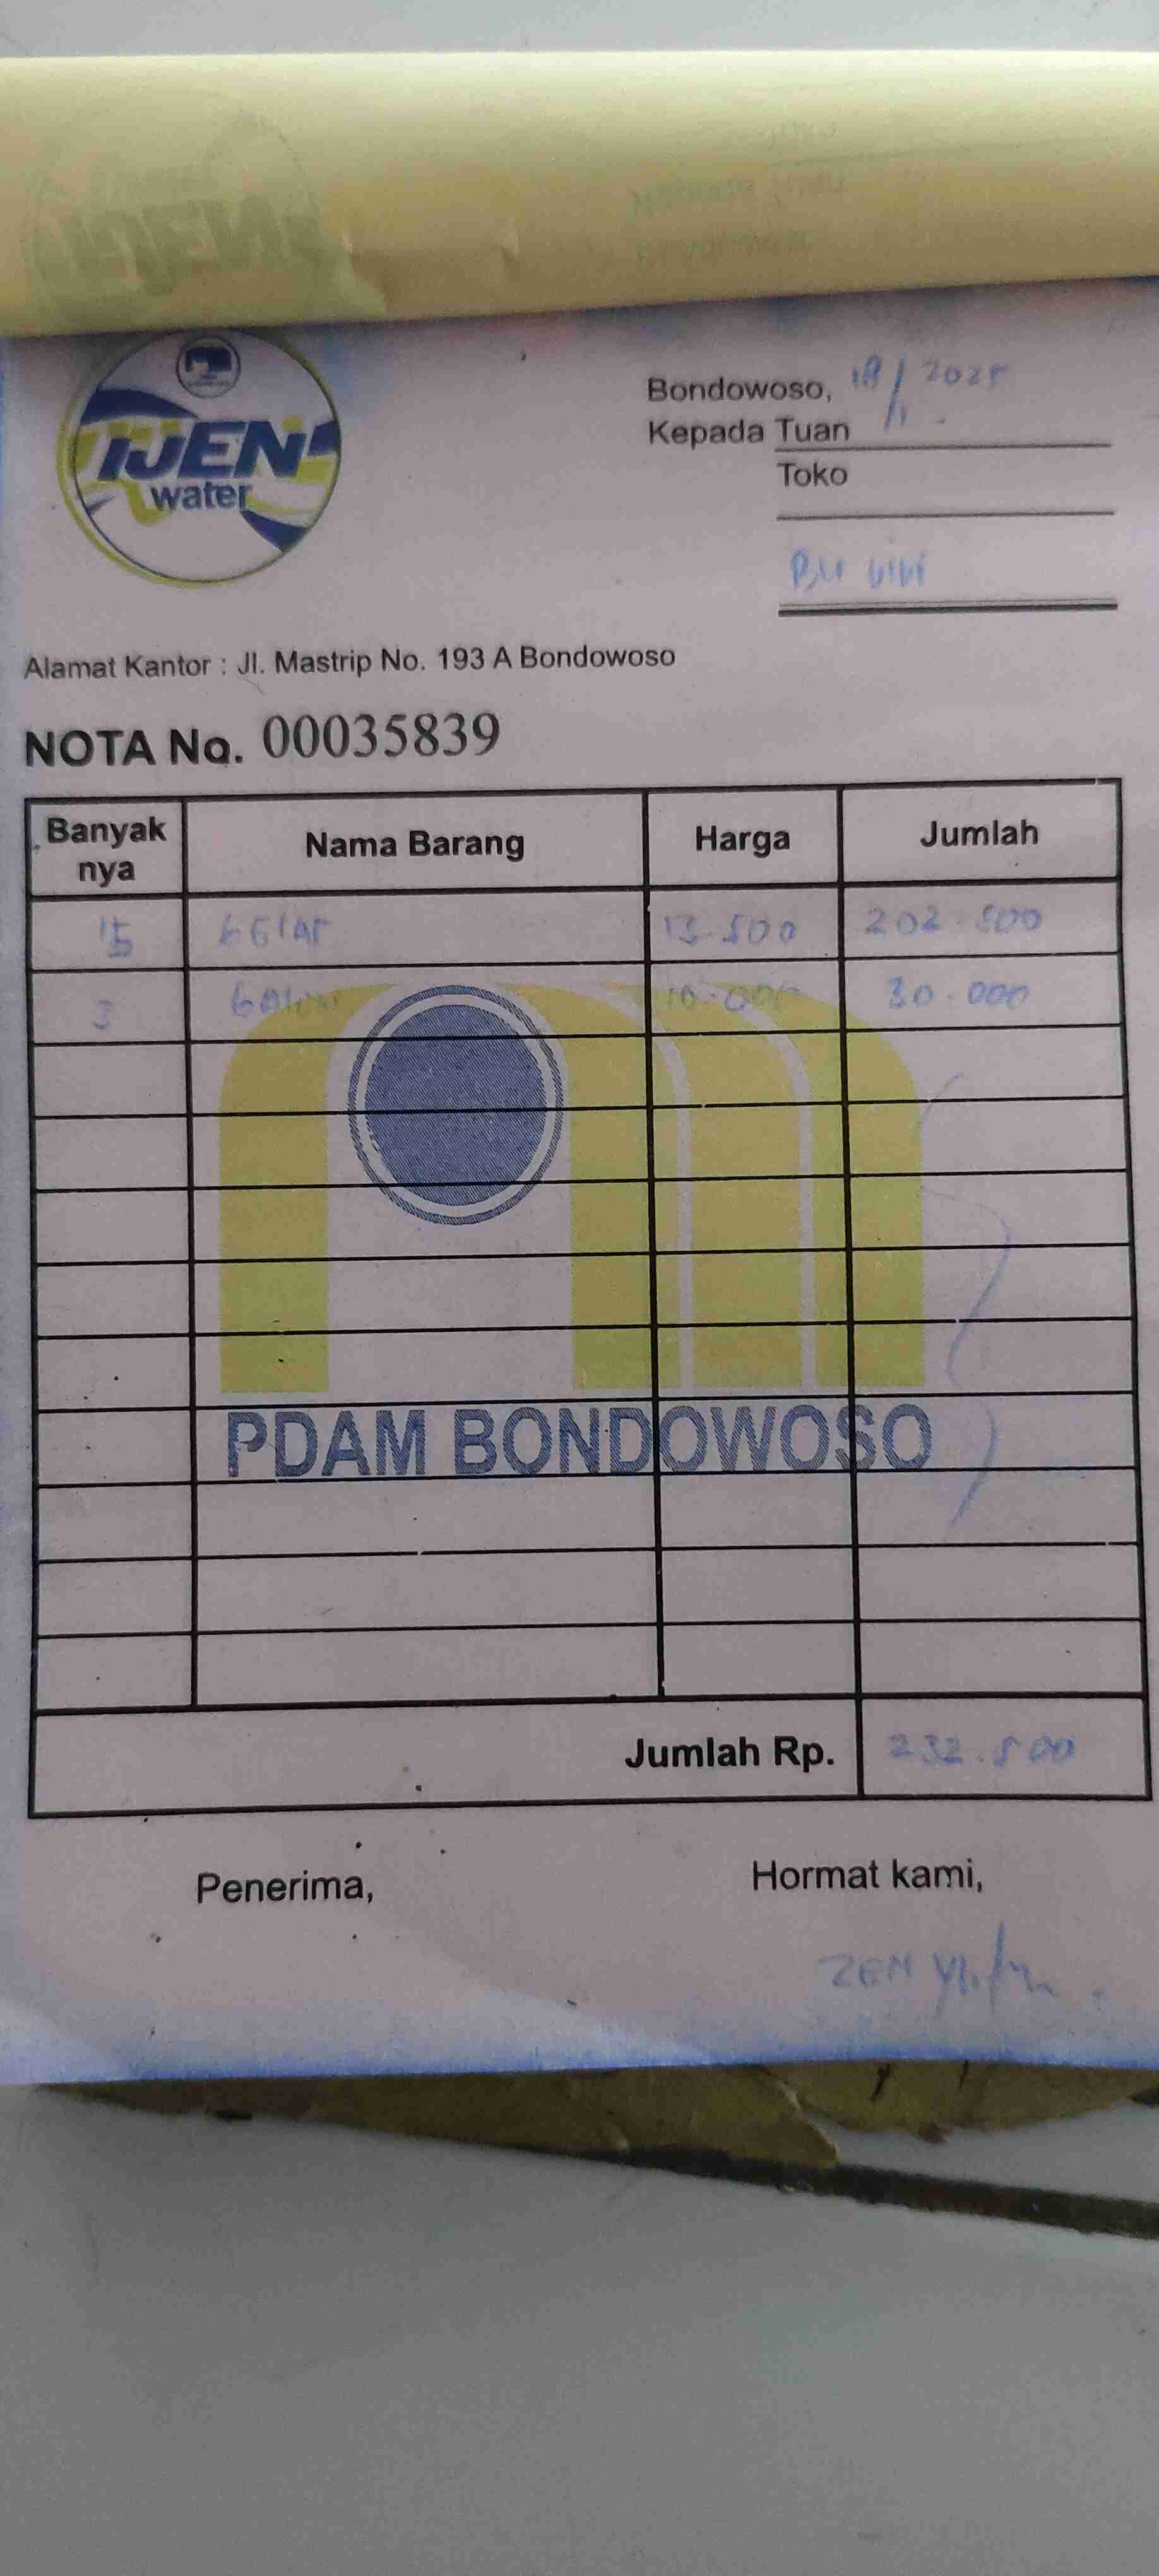 IJEN
water
Bondowoso, 18/1 2025
Kepada Tuan
Toko
Alamat Kantor : Jl. Mastrip No. 193 A Bondowoso
NOTA No. 00035839
Banyak nya Nama Barang Harga Jumlah
15 GELAS 13.500 202.500
3 10.000 30.000
PDAM BONDOWOSO
Jumlah Rp. 232.500
Penerima, Hormat kami,
ZEN